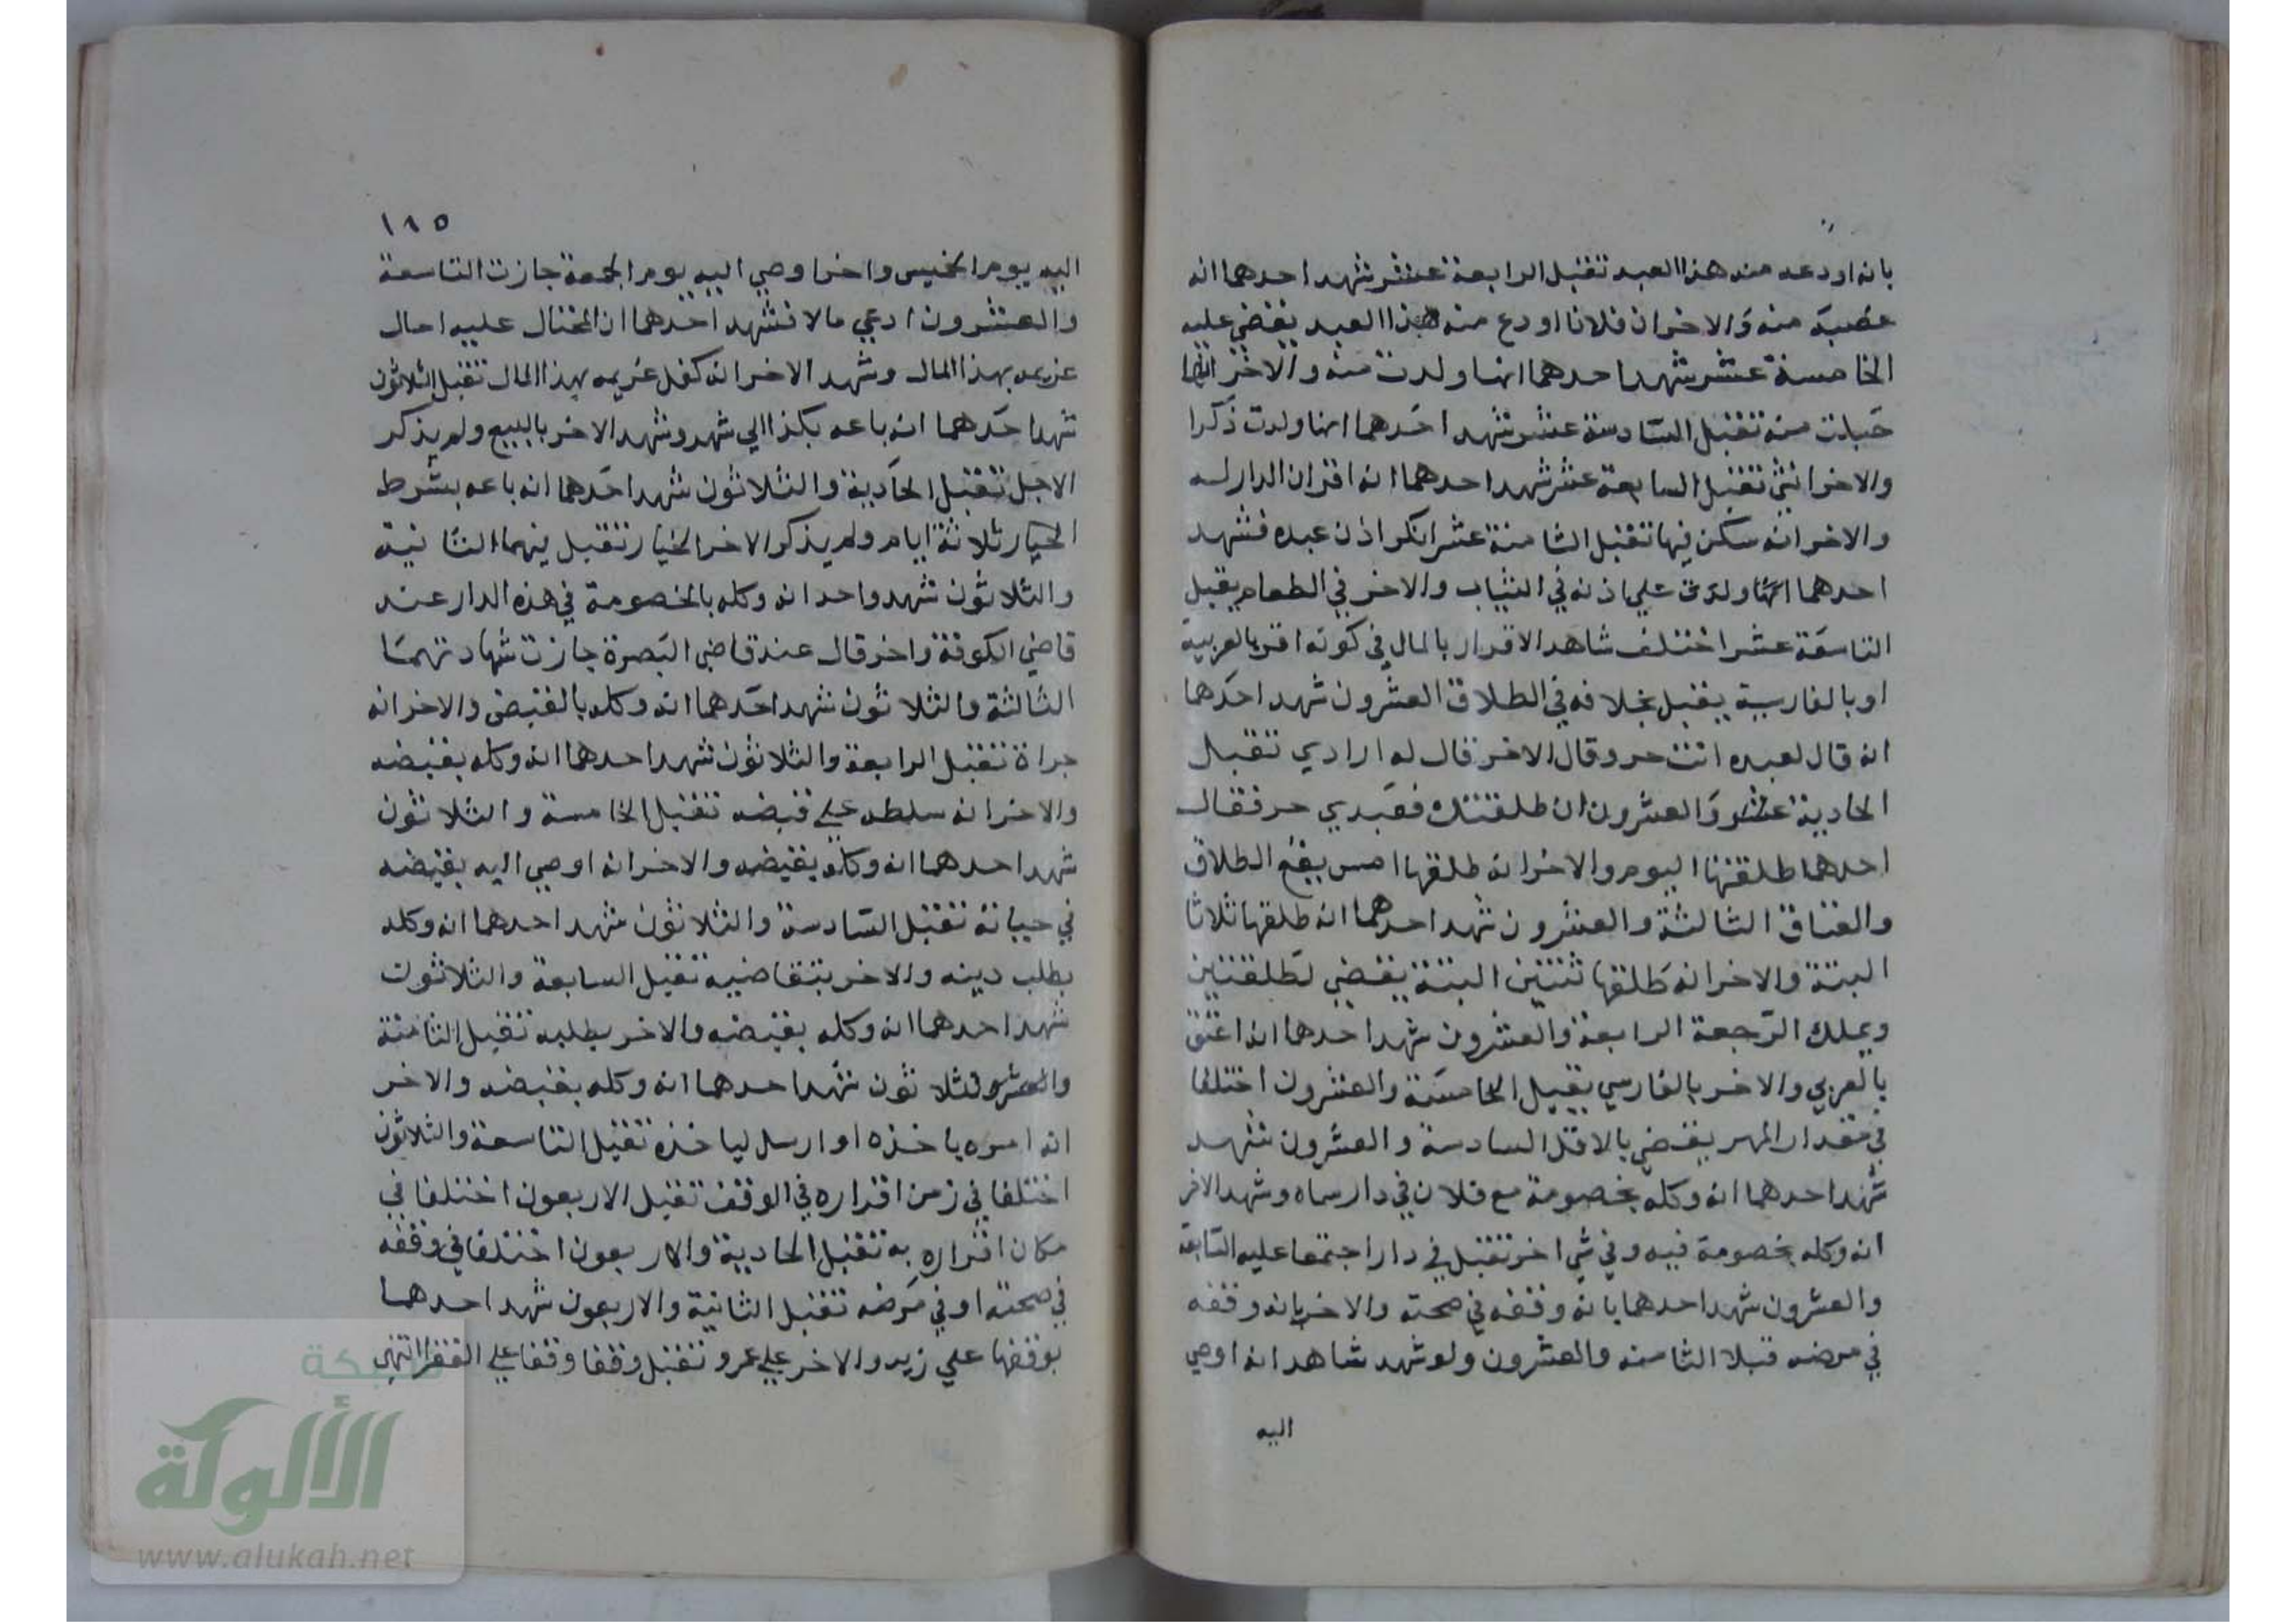 بانه اودعه منه هذا العبد تقبل الرابعة عشر شهد احدهما انه
غصبه منه والاخر ان فلانا اودع منه هذا العبد يقضي عليه
الخامسة عشر شهد احدهما انها ولدت منه والاخر انها
حبلت منه تقبل السادسة عشر شهد احدهما انها ولدت ذكرا
والاخر انثى تقبل السابعة عشر شهد احدهما انه اقر ان الدار له
والاخر انه سكن فيها تقبل الثامنة عشر انكر اذن عبده فشهد
احدهما على اذنه في الثياب والاخر في الطعام يقبل
التاسعة عشر اختلف شاهد الاقرار بالمال في كونه اقر بالعربية
او بالفارسية يقبل بخلافه في الطلاق العشرون شهد احدهما
انه قال لعبده انت حر وقال الاخر قال له ارادي تقبل
الحادية عشر والعشرون ان طلقتك فعبدي حر فقال
احدهما طلقتها اليوم والاخر انه طلقها امس يقع الطلاق
والعتاق الثالثة والعشرون شهد احدهما انه طلقها ثلاثا
البتة والاخر انه طلقها ثنتين البتة يقضي لطلقتين
ويملك الرجعة الرابعة والعشرون شهد احدهما انه اعتق
بالعربي والاخر بالفارسي يقبل الخامسة والعشرون اختلفا
في مقدار المهر يقضي بالاقل السادسة والعشرون شهد
شهد احدهما انه وكله بخصومة مع فلان في دار سماه وشهد الاخر
انه وكله بخصومة فيه وفي شي اخر تقبل في دار اجتمعا عليه السابعة
والعشرون شهد احدهما بانه وقفه في صحته والاخر بانه وقفه
في مرضه قبلا الثامنه والعشرون ولو شهد شاهد انه اوصي
اليه
١١٥
اليه يوم الخميس واخر اوصي اليه يوم الجمعة جازت التاسعة
والعشرون ادعي مالا فشهد احدهما ان المحتال عليه احال
غريمه بهذا المال وشهد الاخر انه كفل غريمه بهذا المال تقبل الثلاثون
شهد احدهما انه باعه بكذا الي شهر وشهد الاخر بالبيع ولم يذكر
الاجل تقبل الحادية والثلاثون شهد احدهما انه باعه بشرط
الخيار ثلاثة ايام ولم يذكر الاخر الخيار تقبل فيهما الثانية
والثلاثون شهد واحد انه وكله بالخصومة في هذه الدار عند
قاضي الكوفة واخر قال عند قاضي البصرة جازت شهادتهما
الثالثة والثلاثون شهد احدهما انه وكله بالقبض والاخر انه
جراه تقبل الرابعة والثلاثون شهد احدهما انه وكله بقبضه
والاخر انه سلطه على قبضه تقبل الخامسة والثلاثون
شهد احدهما انه وكله بقبضه والاخر انه اوصي اليه بقبضه
في حياته تقبل السادسة والثلاثون شهد احدهما انه وكله
بطلب دينه والاخر بتقاضيه تقبل السابعة والثلاثون
شهد احدهما انه وكله بقبضه والاخر بطلبه تقبل الثامنة
والثلاثون شهد احدهما انه وكله بقبضه والاخر
انه امره باخذه او ارسله لياخذه تقبل التاسعة والثلاثون
اختلفا في زمن اقراره في الوقف تقبل الاربعون اختلفا في
مكان اقراره به تقبل الحادية والاربعون اختلفا في وقفه
في صحته او في مرضه تقبل الثانية والاربعون شهد احدهما
بوقفها علي زيد والاخر علي عمرو تقبل وقفا وقفا على الفقرا انتهى
شبكة
الألوكة
www.alukah.net